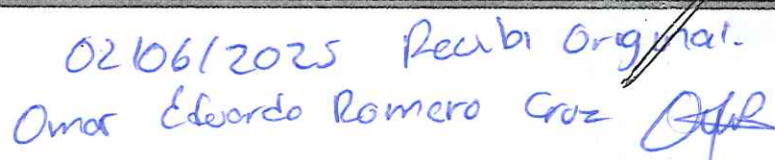 02/06/2025 Recibi Original.
Omar Eduardo Romero Cruz